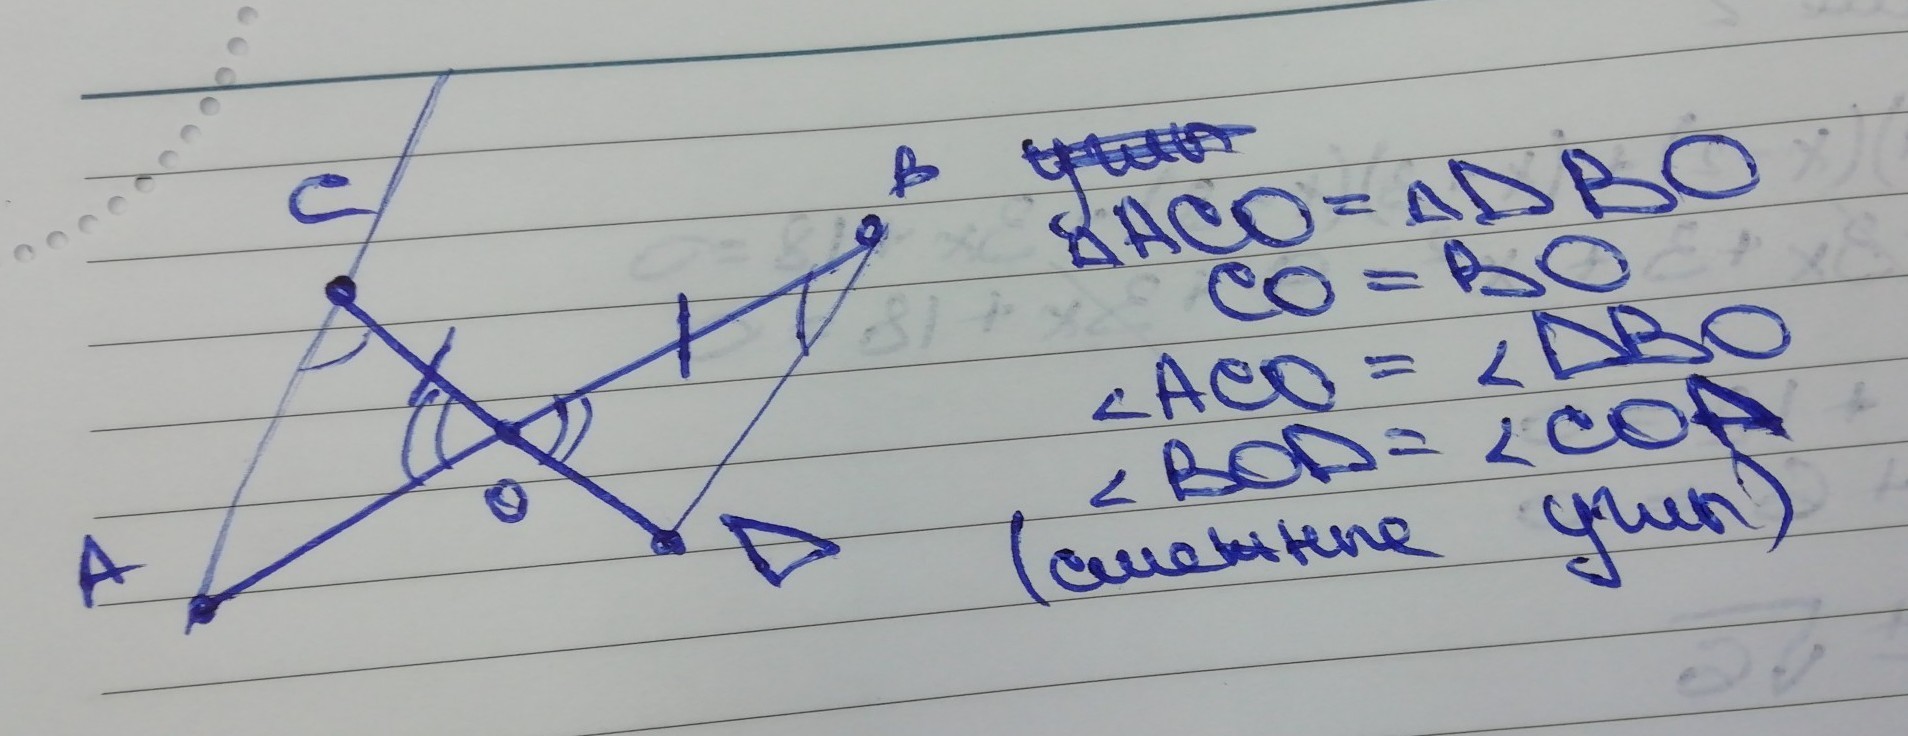 C
B
A
O
D
ΔACO = ΔDBO
CO = BO
∠ACO = ∠DBO
∠BOD = ∠COA
(смежные углы)